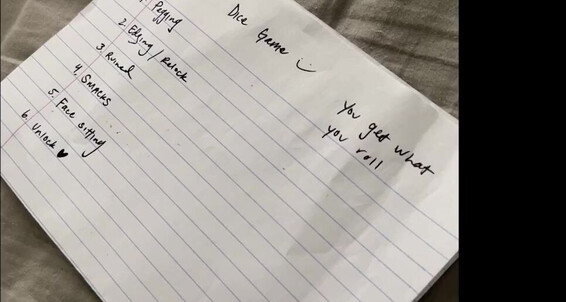 Dice Game :)
1. Pegging
2. Edging / Relock
3. Ruined
4. SMACKS
5. Face sitting
6. Unlock ♥
You get what
you roll